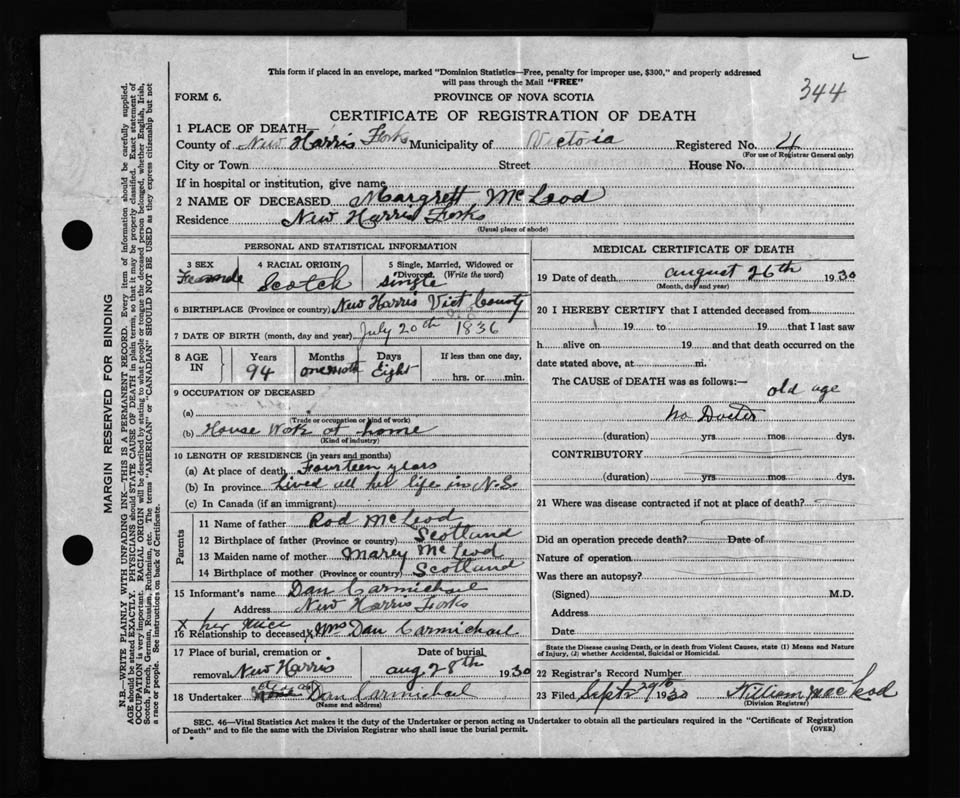 This form if placed in an envelope, marked "Dominion Statistics—Free, penalty for improper use, $300," and properly addressed
will pass through the Mail "FREE"
344
FORM 6.
PROVINCE OF NOVA SCOTIA
CERTIFICATE OF REGISTRATION OF DEATH
1 PLACE OF DEATH—
County of New Harris Forks Municipality of Victoria Registered No. 4
(For use of Registrar General only)
City or Town Street House No.
If in hospital or institution, give name
2 NAME OF DECEASED Margrett McLeod
Residence New Harris Forks
(Usual place of abode)
PERSONAL AND STATISTICAL INFORMATION
3 SEX 4 RACIAL ORIGIN 5 Single, Married, Widowed or
Divorced (Write the word)
Female Scotch Single
6 BIRTHPLACE (Province or country) New Harris Vict County
7 DATE OF BIRTH (month, day and year) July 20th 1836
8 AGE IN Years Months Days If less than one day,
94 one month Eight hrs. or min.
9 OCCUPATION OF DECEASED
(a)
(Trade or occupation or kind of work)
(b) House Work at home
(Kind of industry)
10 LENGTH OF RESIDENCE (in years and months)
(a) At place of death Fourteen years
(b) In province Lived all her life in N.S.
(c) In Canada (if an immigrant)
Parents
11 Name of father Rod McLeod
12 Birthplace of father (Province or country) Scotland
13 Maiden name of mother Marey McLeod
14 Birthplace of mother (Province or country) Scotland
15 Informant's name Dan Carmichael
Address New Harris Forks
X her niece
16 Relationship to deceased X Mrs Dan Carmichael
17 Place of burial, cremation or Date of burial
removal New Harris aug 28th 1930
18 Undertaker Dan Carmichael
(Name and address)
MEDICAL CERTIFICATE OF DEATH
19 Date of death august 26th 1930
(Month, day and year)
20 I HEREBY CERTIFY that I attended deceased from
19 to 19 that I last saw
h alive on 19 and that death occurred on the
date stated above, at m.
The CAUSE of DEATH was as follows:—
old age
No Doctor
(duration) yrs mos dys.
CONTRIBUTORY
(duration) yrs mos dys.
21 Where was disease contracted if not at place of death?
Did an operation precede death? Date of
Nature of operation
Was there an autopsy?
(Signed) M.D.
Address
Date
State the Disease causing Death, or in death from Violent Causes, state (1) Means and Nature
of Injury, (2) whether Accidental, Suicidal or Homicidal.
22 Registrar's Record Number
23 Filed Sept 29th 1930 William MacLeod
(Division Registrar)
SEC. 46—Vital Statistics Act makes it the duty of the Undertaker or person acting as Undertaker to obtain all the particulars required in the "Certificate of Registration
of Death" and to file the same with the Division Registrar who shall issue the burial permit.
(OVER)
MARGIN RESERVED FOR BINDING
N.B.—WRITE PLAINLY WITH UNFADING INK—THIS IS A PERMANENT RECORD. Every item of information should be carefully supplied.
AGE should be stated EXACTLY. PHYSICIANS should STATE CAUSE OF DEATH in plain terms, so that it may be properly classified. Exact statement of
OCCUPATION is very important. RACIAL ORIGIN will be described by stating to what people or tongue the deceased person belonged, whether English, Irish,
Scotch, French, German, Russian, Ruthenian, etc. The terms "AMERICAN" or "CANADIAN" SHOULD NOT BE USED as they express citizenship but not
a race or people. See instructions on back of Certificate.